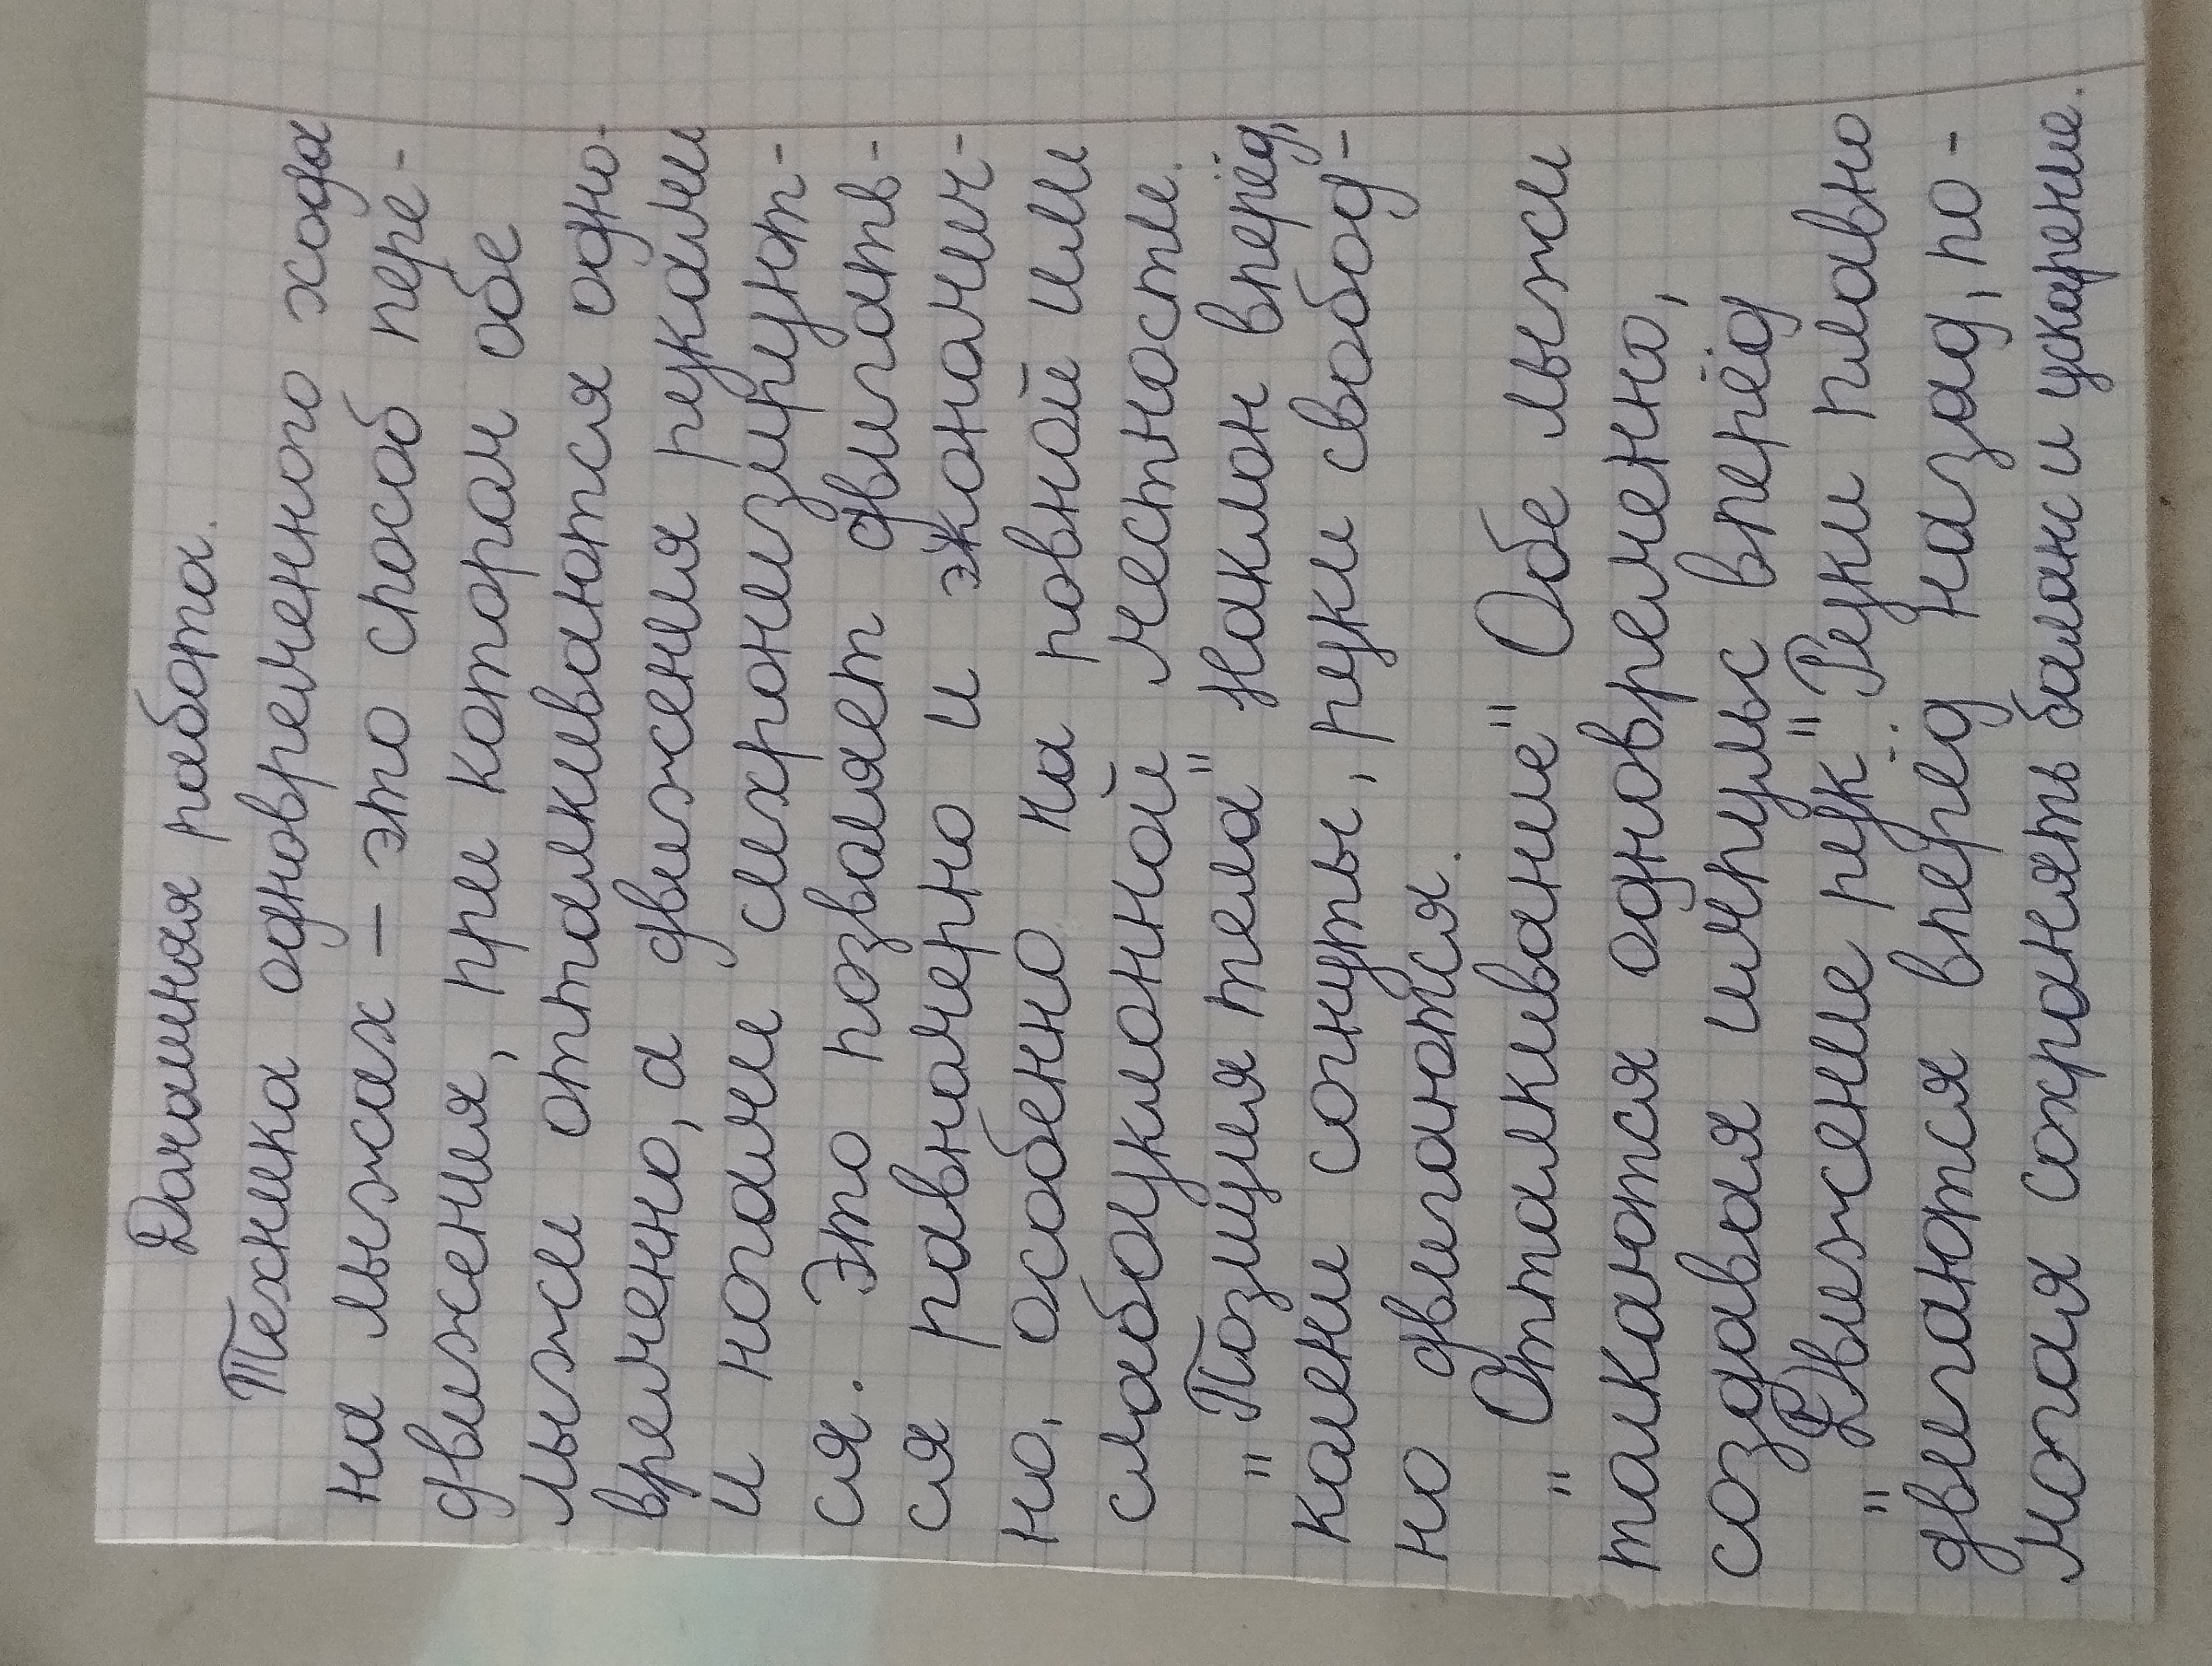 Домашняя работа.
Техника одновременного хода
на лыжах – это способ пере-
движения, при котором обе
лыжи отталкиваются одно-
временно, а движения руками
и ногами сихронизируют-
ся. Это позволяет двигать-
ся равномерно и экономич-
но, особенно на ровной или
слабоуклонной местности.
"Позиция тела" Наклон вперёд,
колени согнуты, руки свобод-
но двигаются.
"Отталкивание" Обе лыжи
толкаются одновременно,
создавая импульс вперёд
"Движение рук" Руки плавно
двигаются вперёд назад, по-
могая сохранять баланс и ускорение.